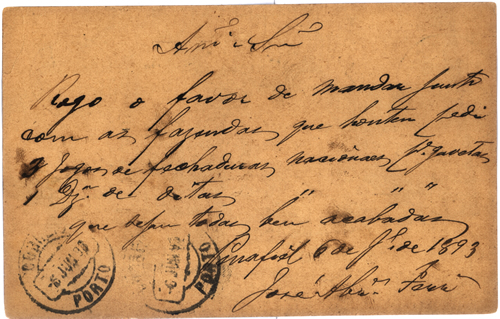 Am.º e Sr.
Rogo o favor de mandar junto
com as fazendas que hontem pedi
2 Jogos de fechaduras nacionaes p.ª gavetas
1 Dz.ª de ditas " " "
que sejam todas bem acabadas
Penafiel 6 de J.º de 1893
José Ab.
PORTO
PORTO